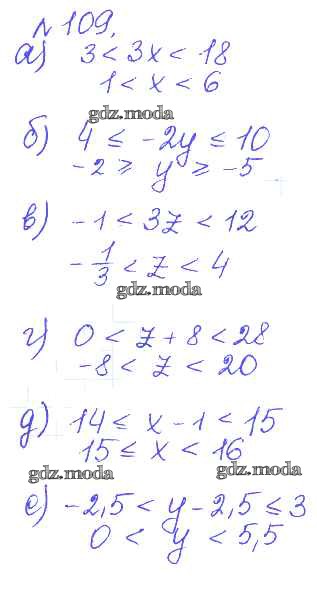 № 109.
а) 3 < 3x < 18
1 < x < 6
gdz.moda
б) 4 ≤ -2y ≤ 10
-2 ≥ y ≥ -5
в) -1 < 3z < 12
-1/3 < z < 4
gdz.moda
г) 0 < z + 8 < 28
-8 < z < 20
д) 14 ≤ x - 1 < 15
15 ≤ x < 16
gdz.moda gdz.moda
е) -2,5 < y - 2,5 ≤ 3
0 < y < 5,5